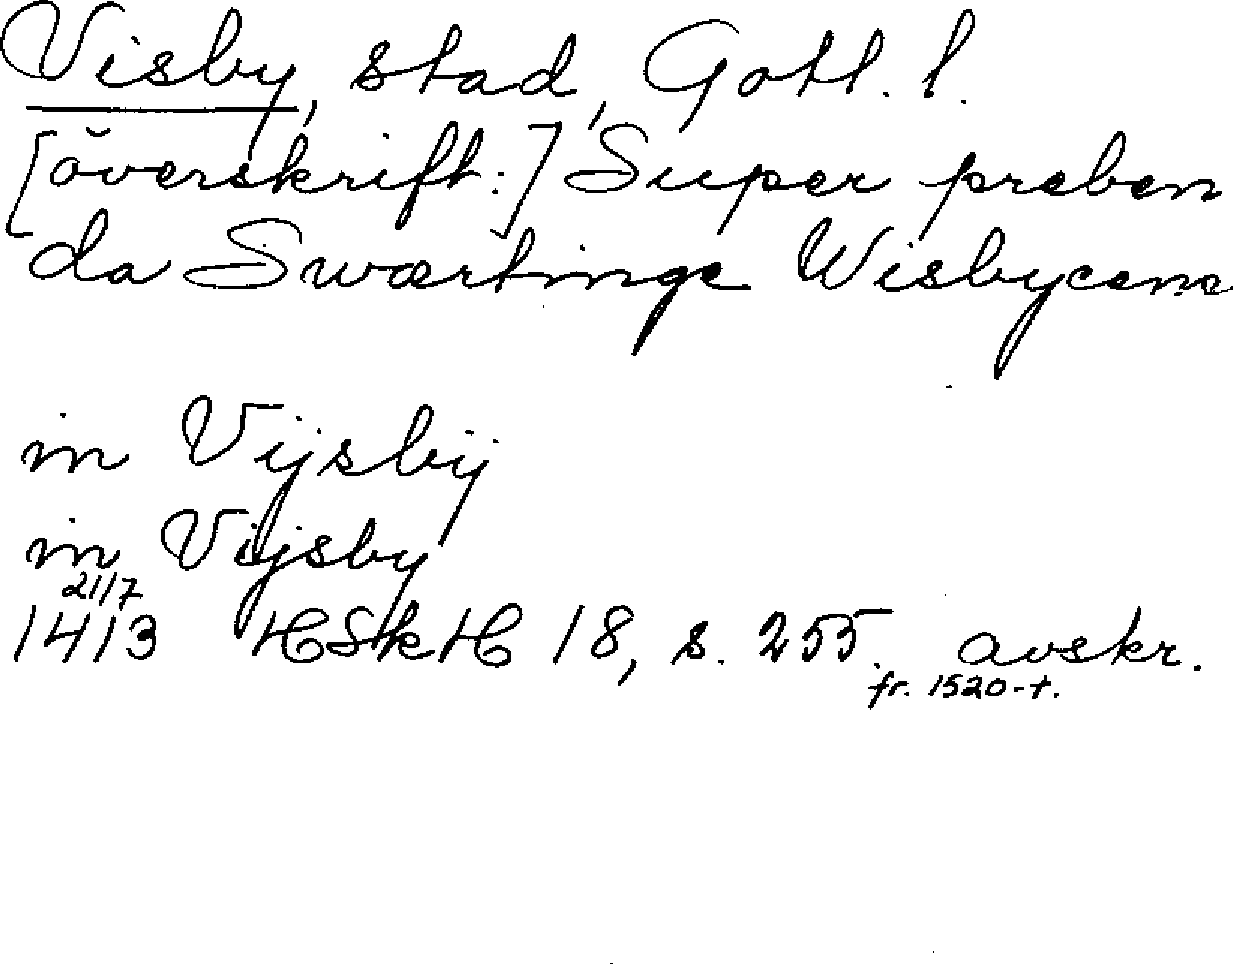 Visby, stad, Gotl. l.
[överskrift:] Super preben
da Swærtinge Wisbycens
in Vijsbÿ
in Vijsby
21/7
1413 HSkH 18, s. 255. avskr.
fr. 1520-t.